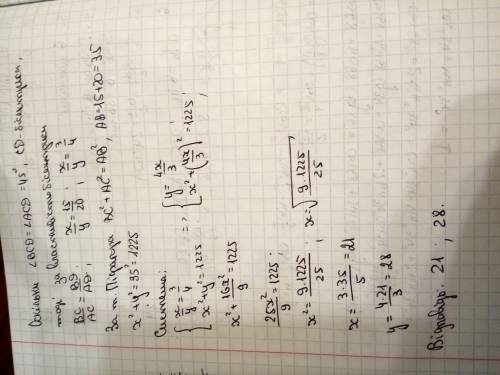 Оскільки ∠BCD = ∠ACD = 45°, CD - бісектриса,
тоді за властивістю бісектриси
BC/AC = BD/AD; x/y = 15/20; x/y = 3/4
За т. Піфагора BC² + AC² = AB², AB = 15+20 = 35
x² + y² = 35 = 1225
Система:
{ x/y = 3/4 => { y = 4x/3
x² + y² = 1225 x² + (4x/3)² = 1225;
x² + 16x²/9 = 1225
25x²/9 = 1225;
x² = 9·1225/25; x = √(9·1225/25)
x = 3·35/5 = 21
y = 4·21/3 = 28
Відповідь: 21; 28.